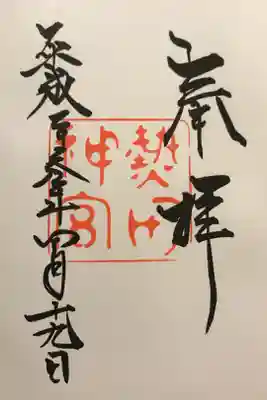 奉拝
熱田神宮
平成年四月十九日